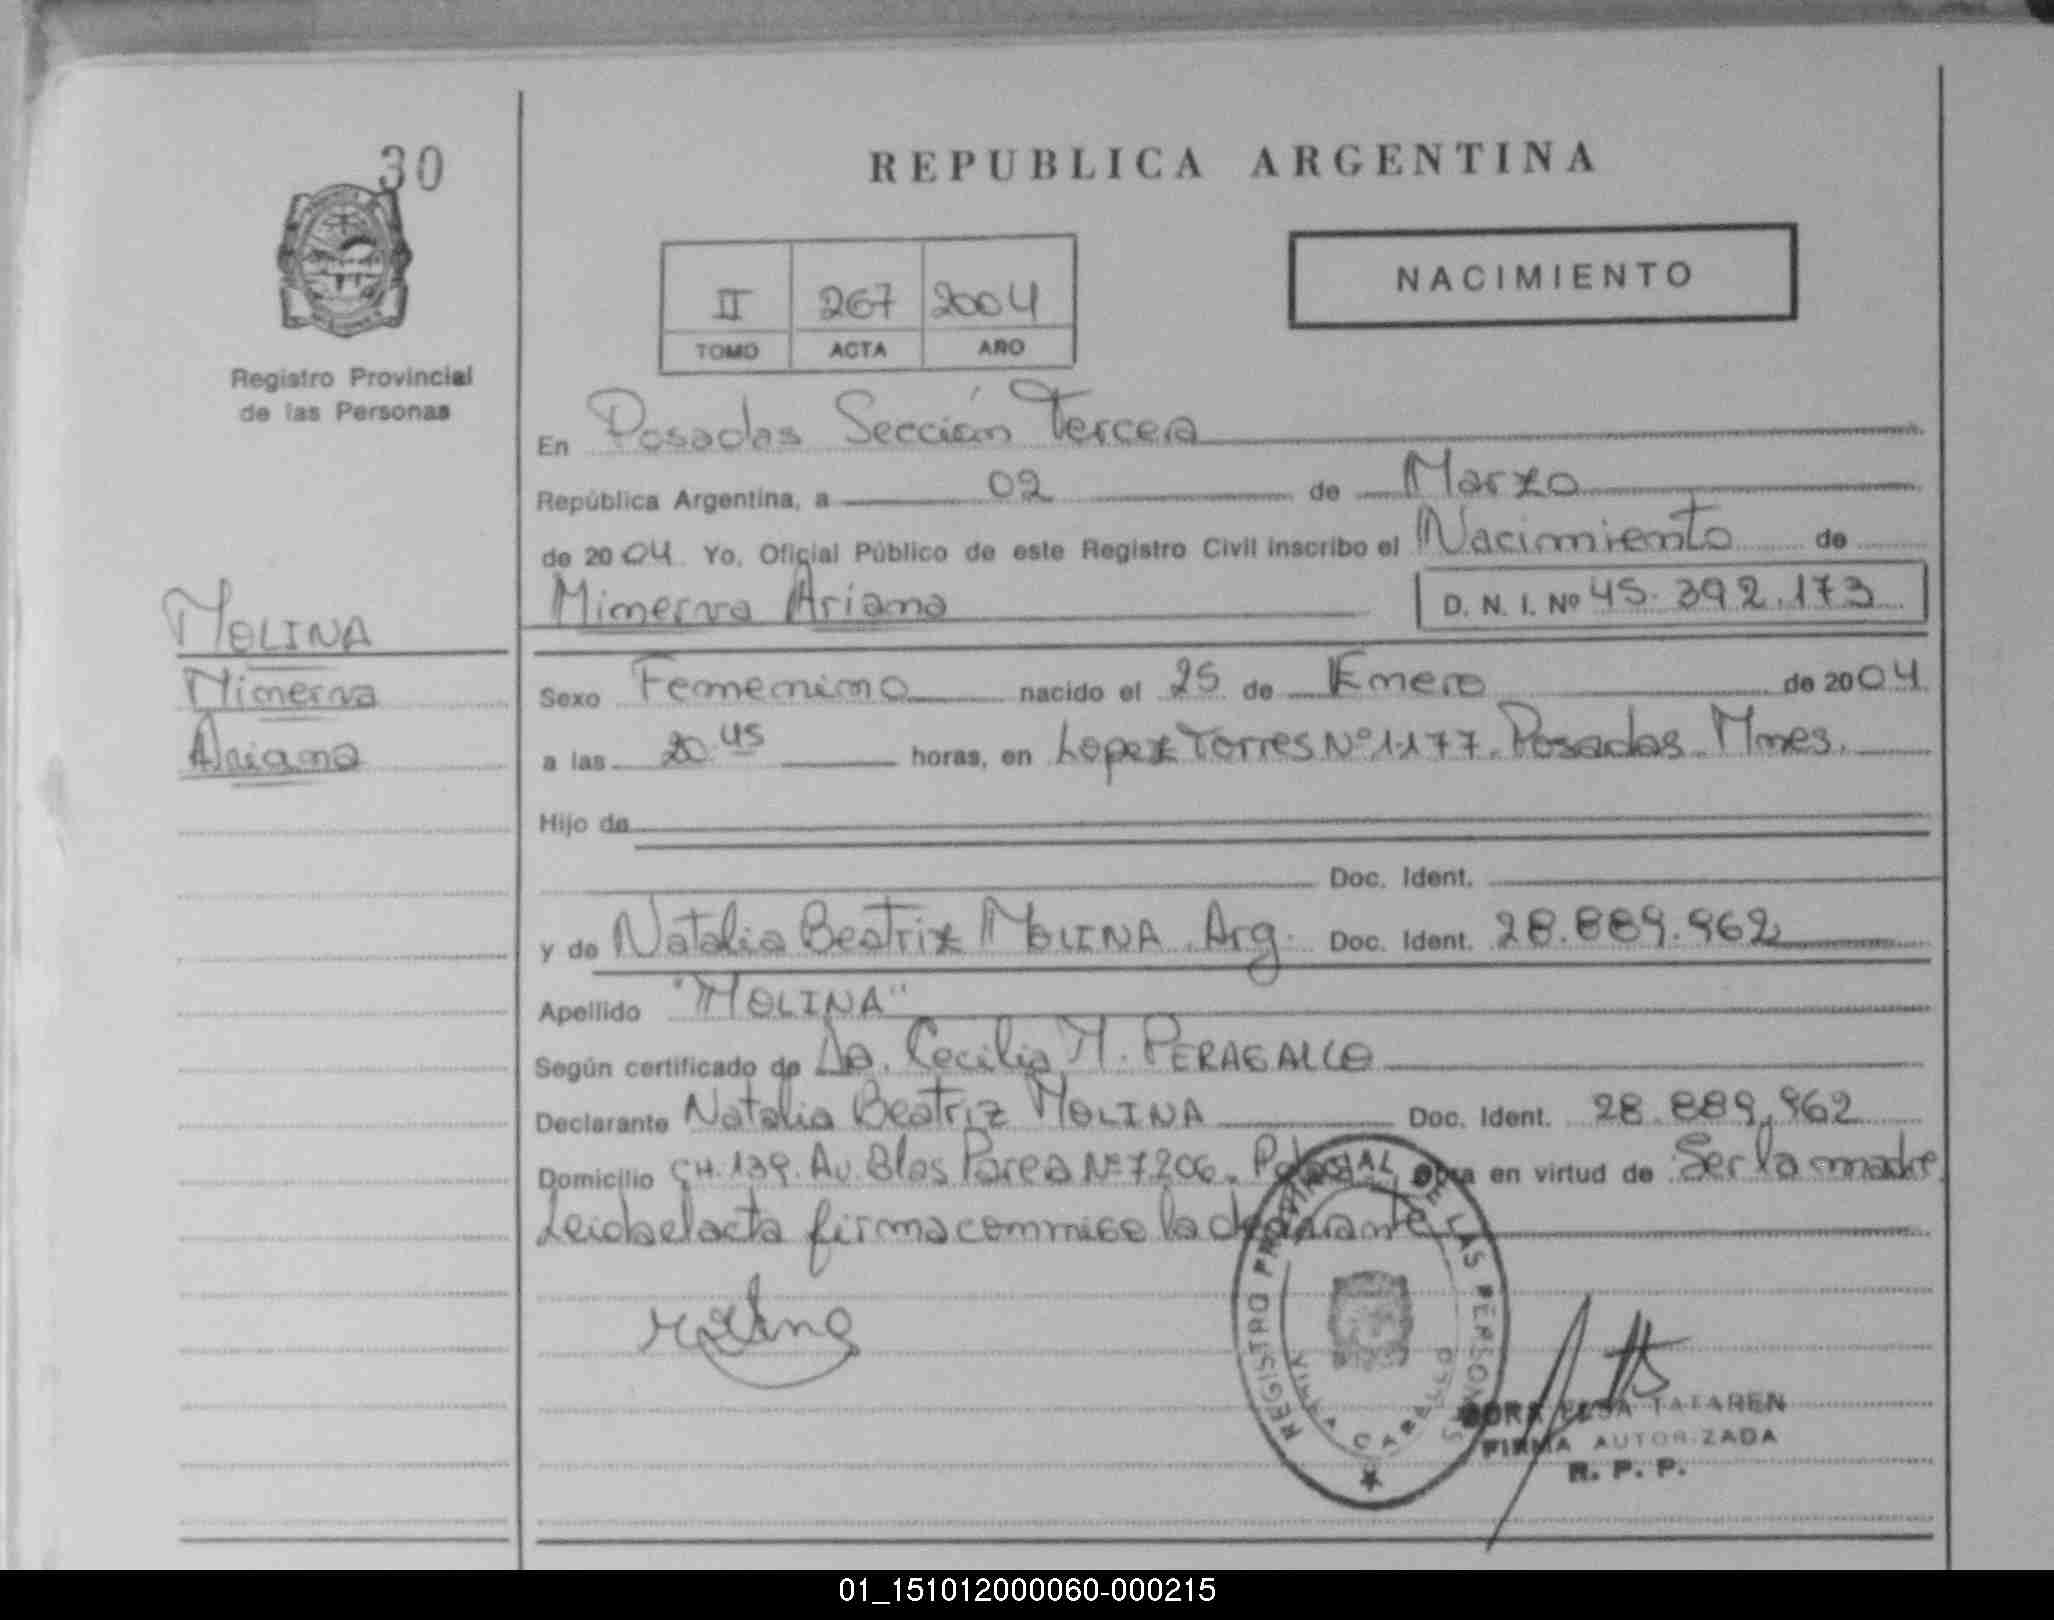 30
REPUBLICA ARGENTINA
NACIMIENTO
II 267 2004
TOMO ACTA AÑO
Registro Provincial
de las Personas
En Posadas Sección Tercera
República Argentina, a 02 de Marzo
de 2004 Yo, Oficial Público de este Registro Civil inscribo el Nacimiento de
Minerva Ariana D. N. I. Nº 45.392.173
MOLINA
Minerva
Ariana
Sexo Femenino nacido el 25 de Enero de 2004
a las 20 45 horas, en Lopez Torres Nº 1177. Posadas. Mnes.
Hijo de
Doc. Ident.
y de Natalia Beatriz MOLINA. Arg. Doc. Ident. 28.889.962
Apellido "MOLINA"
Según certificado de Da. Cecilia M. PERAGALLO
Declarante Natalia Beatriz MOLINA Doc. Ident. 28.889.962
Domicilio CH.139. Av. Blas Parera Nº 7206. Obra en virtud de Ser la madre.
Leida el acta firma conmigo la declarante
REGISTRO PROVINCIAL DE LAS PERSONAS
VILLA CABELLO
DORA TATAREN
FIRMA AUTORIZADA
R. P. P.
01_151012000060-000215